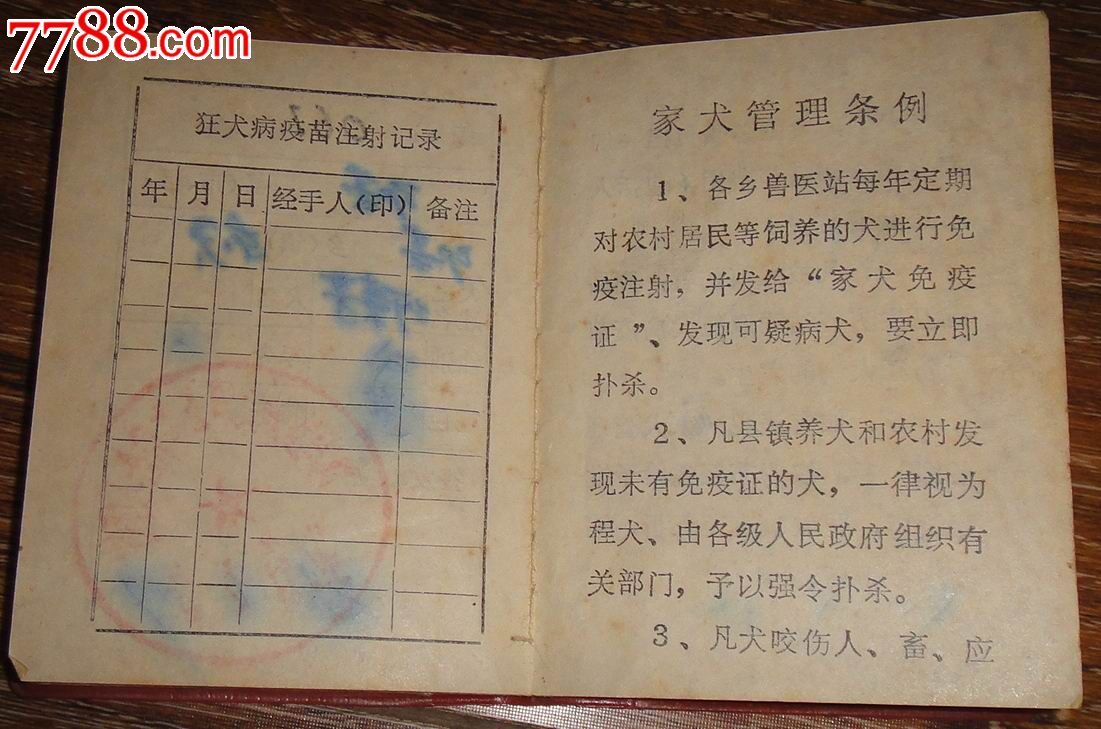 7788.com
狂犬病疫苗注射记录
年 月 日 经手人(印) 备注
家犬管理条例
1、各乡兽医站每年定期
对农村居民等饲养的犬进行免
疫注射，并发给“家犬免疫
证”、发现可疑病犬，要立即
扑杀。
2、凡县镇养犬和农村发
现未有免疫证的犬，一律视为
程犬、由各级人民政府组织有
关部门，予以强令扑杀。
3、凡犬咬伤人、畜、应